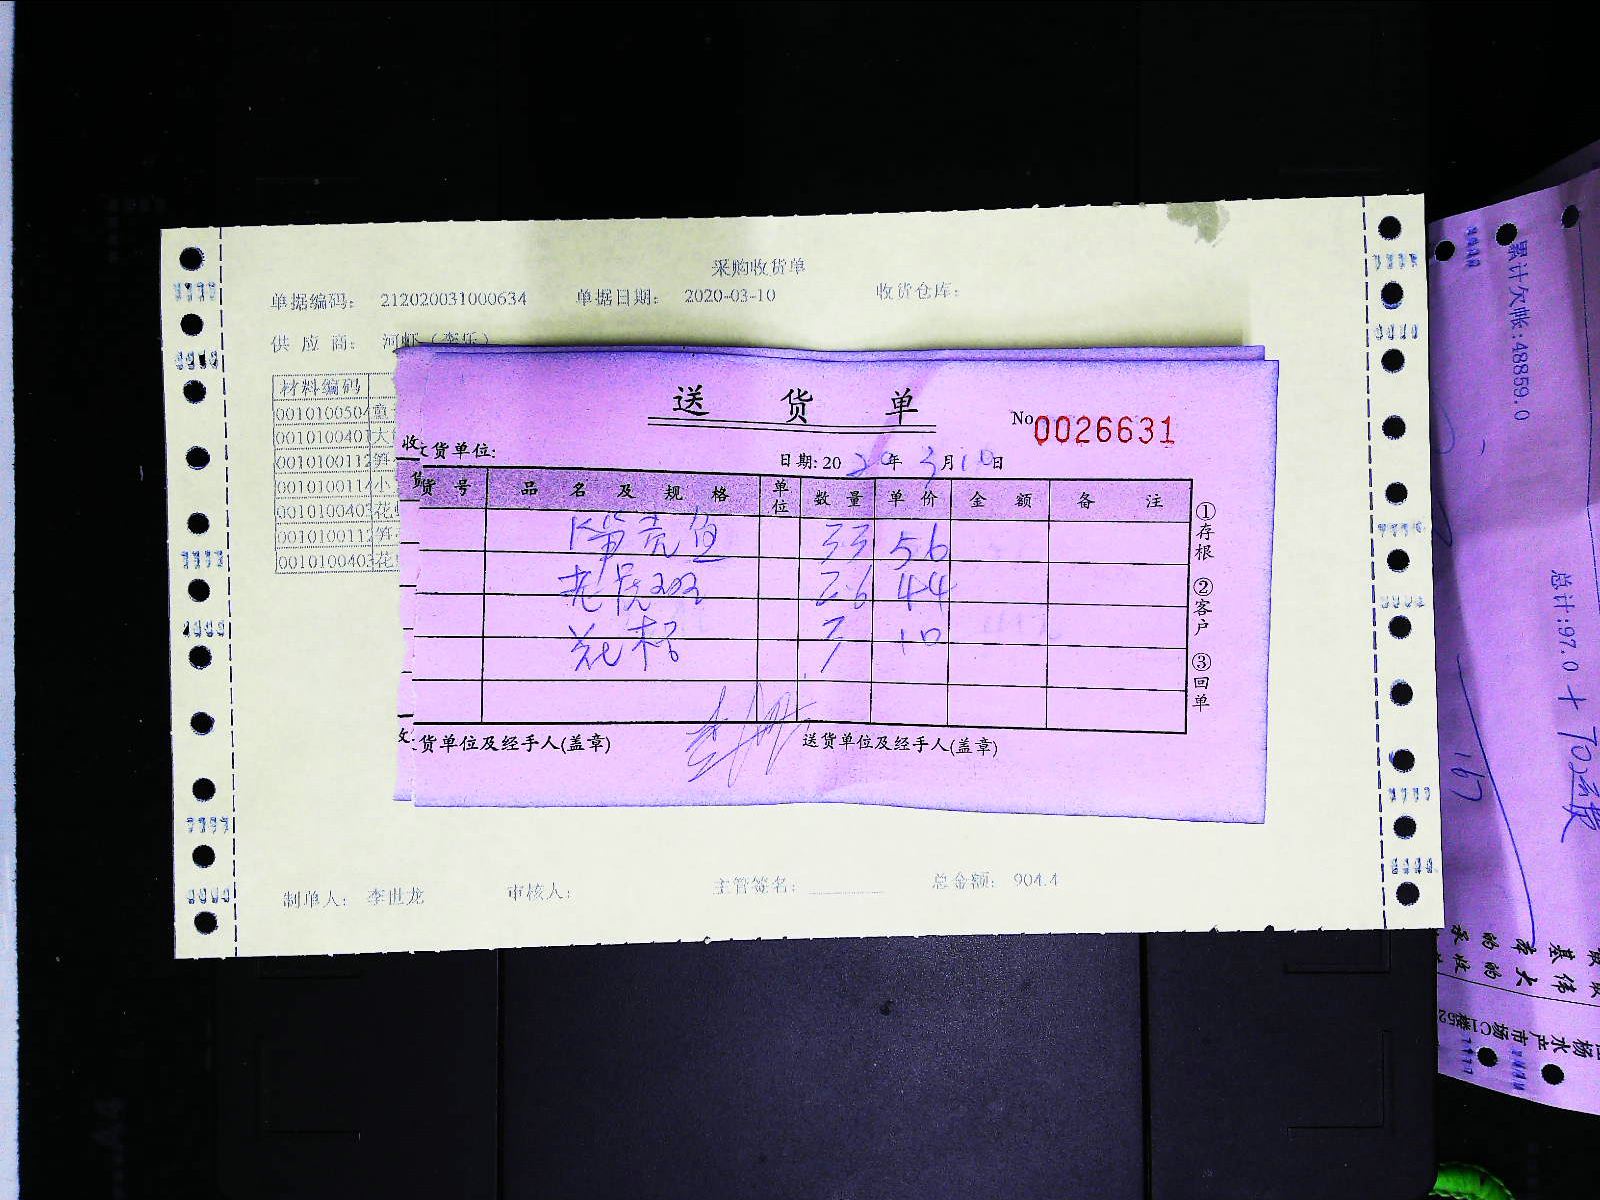 采购收货单
单据编码： 212020031000634 单据日期： 2020-03-10 收货仓库：
供 应 商： 河虾（李乐）
材料编码
0010100504 童
0010100401 大
0010100112 笋
0010100114 小
0010100403 花
0010100112 笋
0010100403 花
送 货 单
No 0026631
收货单位： 日期: 20 20 年 3 月 10 日
货 号 品 名 及 规 格 单位 数 量 单 价 金 额 备 注
笋壳鱼 33 56
老虎斑 2.6 44
花 3 10
①存根 ②客户 ③回单
收货单位及经手人(盖章) 送货单位及经手人(盖章)
制单人： 李世龙 审核人： 主管签名： 总金额： 904.4
累计欠帐:48859.0
总计:97.0 +
167
水产市场C1楼52